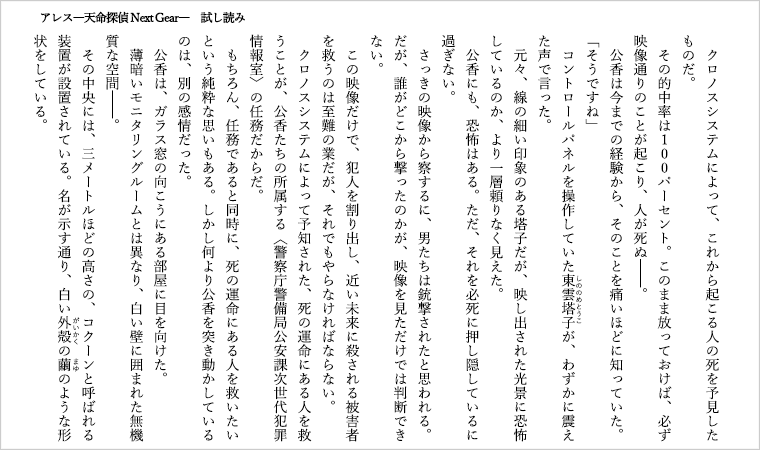 アレス―天命探偵 Next Gear― 試し読み
クロノスシステムによって、これから起こる人の死を予見した
ものだ。
その的中率は100パーセント。このまま放っておけば、必ず
映像通りのことが起こり、人が死ぬ――。
公香は今までの経験から、そのことを痛いほどに知っていた。
「そうですね」
コントロールパネルを操作していた東雲塔子が、わずかに震え
しののめとうこ
た声で言った。
元々、線の細い印象のある塔子だが、映し出された光景に恐怖
しているのか、より一層頼りなく見えた。
公香にも、恐怖はある。ただ、それを必死に押し隠しているに
過ぎない。
さっきの映像から察するに、男たちは銃撃されたと思われる。
だが、誰がどこから撃ったのかが、映像を見ただけでは判断でき
ない。
この映像だけで、犯人を割り出し、近い未来に殺される被害者
を救うのは至難の業だが、それでもやらなければならない。
クロノスシステムによって予知された、死の運命にある人を救
うことが、公香たちの所属する〈警察庁警備局公安課次世代犯罪
情報室〉の任務だからだ。
もちろん、任務であると同時に、死の運命にある人を救いたい
という純粋な思いもある。しかし何より公香を突き動かしている
のは、別の感情だった。
公香は、ガラス窓の向こうにある部屋に目を向けた。
薄暗いモニタリングルームとは異なり、白い壁に囲まれた無機
質な空間――。
その中央には、三メートルほどの高さの、コクーンと呼ばれる
装置が設置されている。名が示す通り、白い外殻の繭のような形
がいかく
まゆ
状をしている。